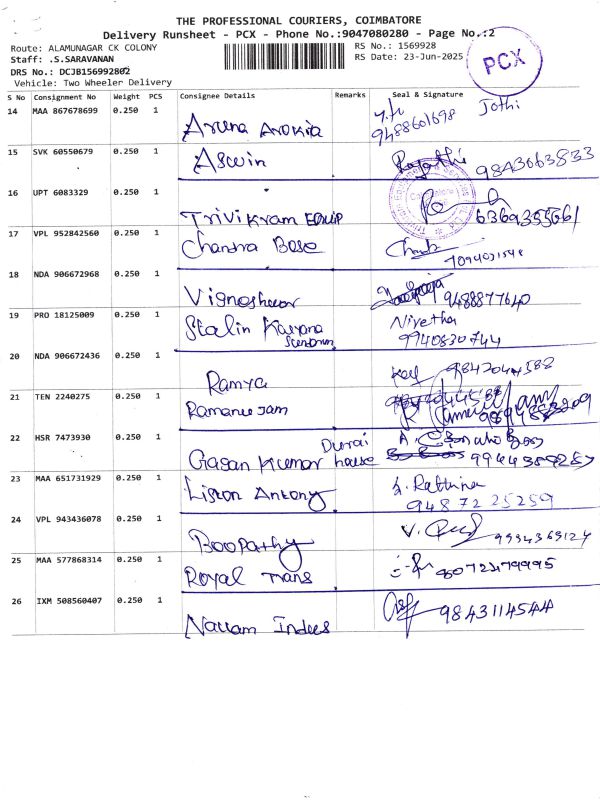 THE PROFESSIONAL COURIERS, COIMBATORE
Delivery Runsheet - PCX - Phone No.:9047080280 - Page No.:2
Route: ALAMUNAGAR CK COLONY
RS No.: 1569928
Staff: .S.SARAVANAN
RS Date: 23-Jun-2025
DRS No.: DCJB156992802
Vehicle: Two Wheeler Delivery
PCX
S No Consignment No Weight PCS Consignee Details Remarks Seal & Signature
14 MAA 867678699 0.250 1 Aruna Arokia 9488601698 Jothi
15 SVK 60550679 0.250 1 Aswin 9843663833
16 UPT 6083329 0.250 1 Trivikram EQUIP 6369355661
17 VPL 952842560 0.250 1 Chandra Bose
18 NDA 906672968 0.250 1 Vigneshwar 9488877640
19 PRO 18125009 0.250 1 Stalin Nivetha
9940830744
20 NDA 906672436 0.250 1 Ramya 9842044588
21 TEN 2240275 0.250 1 Ramanujam
22 HSR 7473930 0.250 1 Gagan Kumar Durai house 9944389287
23 MAA 651731929 0.250 1 Liston Antony S. Rathina
9487225259
24 VPL 943436078 0.250 1 Boopathy 9994369124
25 MAA 577868314 0.250 1 Royal Trans 8072479995
26 IXM 508560407 0.250 1 9843114544